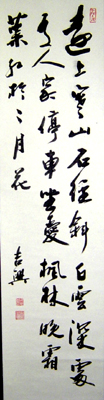 遠上寒山石徑斜白雲深處
有人家停車坐愛楓林晚霜
葉紅於二月花
吉興